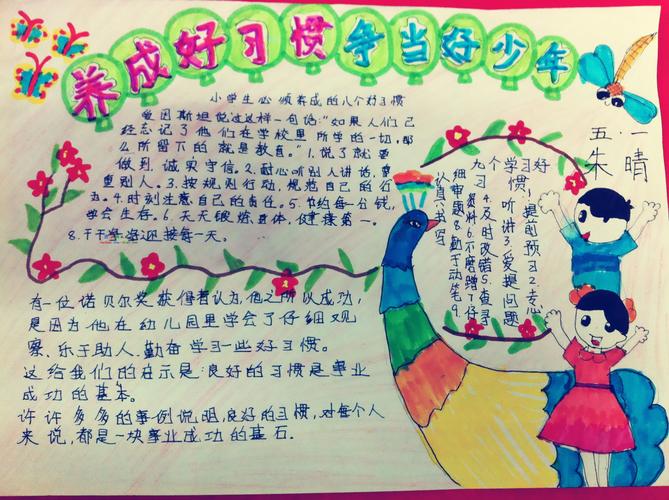 养成好习惯争当好少年
五·一
朱晴
小学生必须养成的八个好习惯
爱因斯坦说过这样一句话:“如果人们已
经忘记了他们在学校里所学的一切,那
么所留下的就是教育。”1.说了就要
做到,诚实守信。2.耐心听别人讲话,尊
重别人。3.按规则行动,规范自己的行
为。4.时刻注意自己的责任。5.节约每一分钱,
学会生存。6.天天锻炼身体,健康第一。
8.干干净净过好每一天。
九个学习好
习惯:1提前预习2.专心
听讲3.爱提问题
4.及时改错5.查寻
资料6.不磨蹭7.仔
细审题8.勤于动笔9.
认真书写
有一位诺贝尔奖获得者认为,他之所以成功,
是因为他在幼儿园里学会了仔细观
察、乐于助人、勤奋学习一些好习惯。
这给我们的启示是:良好的习惯是事业
成功的基本。
许许多多的事例说明,良好的习惯,对每个人
来说,都是一块事业成功的基石.